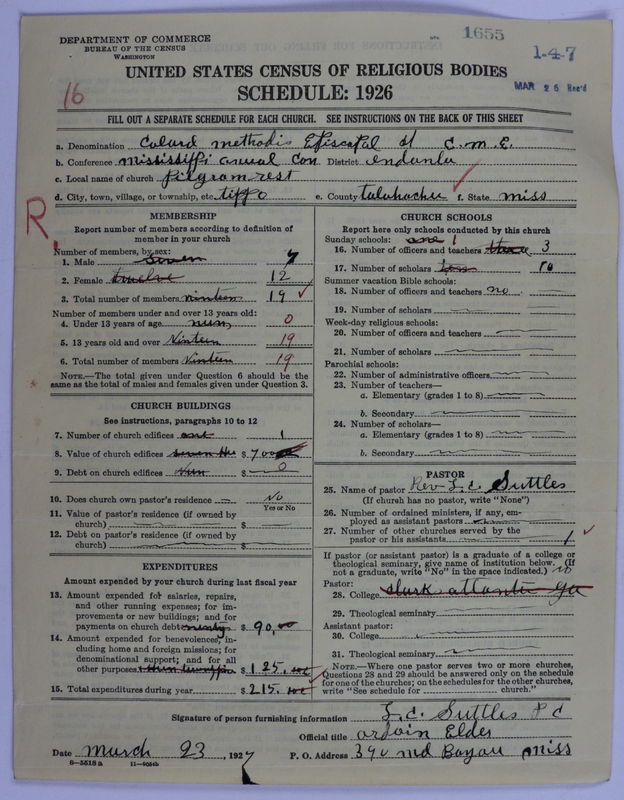 DEPARTMENT OF COMMERCE
BUREAU OF THE CENSUS
WASHINGTON
1655
1-4-7
UNITED STATES CENSUS OF RELIGIOUS BODIES
SCHEDULE: 1926
MAR 25 Rec'd
16
FILL OUT A SEPARATE SCHEDULE FOR EACH CHURCH. SEE INSTRUCTIONS ON THE BACK OF THIS SHEET
a. Denomination Colard methodis Episcapal C. M. E.
b. Conference Mississiffi anual Con District Indanla
c. Local name of church Pilgram rest
d. City, town, village, or township, etc. tiffo e. County talahachie f. State miss
R
MEMBERSHIP
Report number of members according to definition of
member in your church
Number of members, by sex:
1. Male seven 7
2. Female twelve 12
3. Total number of members nineteen 19
Number of members under and over 13 years old:
4. Under 13 years of age nun 0
5. 13 years old and over Ninteen 19
6. Total number of members Ninteen 19
NOTE.—The total given under Question 6 should be the
same as the total of males and females given under Question 3.
CHURCH BUILDINGS
See instructions, paragraphs 10 to 12
7. Number of church edifices one 1
8. Value of church edifices seven $ 700
9. Debt on church edifices Nun $ 0
10. Does church own pastor's residence No
Yes or No
11. Value of pastor's residence (if owned by
church) $
12. Debt on pastor's residence (if owned by
church) $
EXPENDITURES
Amount expended by your church during last fiscal year
13. Amount expended for salaries, repairs,
and other running expenses; for im-
provements or new buildings; and for
payments on church debt ninety $ 90,00
14. Amount expended for benevolences, in-
cluding home and foreign missions; for
denominational support; and for all
other purposes $ 125.
15. Total expenditures during year $ 215.
CHURCH SCHOOLS
Report here only schools conducted by this church
Sunday schools: one 1
16. Number of officers and teachers three 3
17. Number of scholars ten 10
Summer vacation Bible schools:
18. Number of officers and teachers no
19. Number of scholars
Week-day religious schools:
20. Number of officers and teachers
21. Number of scholars
Parochial schools:
22. Number of administrative officers
23. Number of teachers—
a. Elementary (grades 1 to 8)
b. Secondary
24. Number of scholars—
a. Elementary (grades 1 to 8)
b. Secondary
PASTOR
25. Name of pastor Rev L. C. Suttles
(If church has no pastor, write "None")
26. Number of ordained ministers, if any, em-
ployed as assistant pastors
27. Number of other churches served by the
pastor or his assistants 1
If pastor (or assistant pastor) is a graduate of a college or
theological seminary, give name of institution below. (If
not a graduate, write "No" in the space indicated.) no
Pastor:
28. College Clark atlanta ga
29. Theological seminary
Assistant pastor:
30. College
31. Theological seminary
NOTE.—Where one pastor serves two or more churches,
Questions 28 and 29 should be answered only on the schedule
for one of the churches; on the schedules for the other churches,
write "See schedule for church."
Signature of person furnishing information L. C. Suttles P C
Official title ordain Elder
Date March 23, 1927 P. O. Address 390 Md Bayou Miss
8-5518a 11-9054b